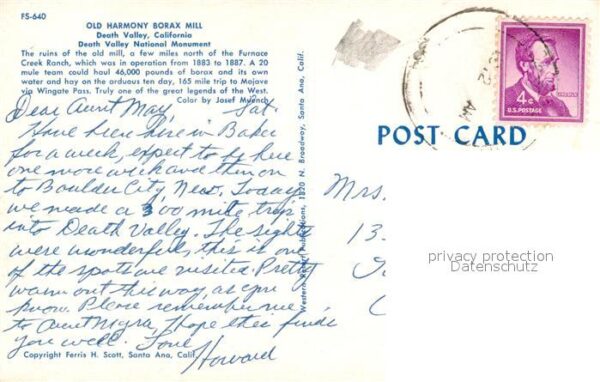 FS-640
OLD HARMONY BORAX MILL
Death Valley, California
Death Valley National Monument
The ruins of the old mill, a few miles north of the Furnace
Creek Ranch, which was in operation from 1883 to 1887. A 20
mule team could haul 46,000 pounds of borax and its own
water and hay on the arduous ten day, 165 mile trip to Mojave
via Wingate Pass. Truly one of the great legends of the West.
Color by Josef Muench
Dear Aunt May, Sat.
Have been here in Baker
for a week, expect to be here
one more week and then on
to Boulder City, Nev. Today
we made a 300 mile trip
into Death Valley. The sights
were wonderful, this is one
of the spots we visited. Pretty
warm out this way, as you
know. Please remember me
to Aunt Myra, I hope this finds
you well. Love
Howard
Copyright Ferris H. Scott, Santa Ana, Calif.
Western Publications, 1820 N. Broadway, Santa Ana, Calif.
POST CARD
4¢
U.S. POSTAGE
Mrs.
13
privacy protection
Datenschutz